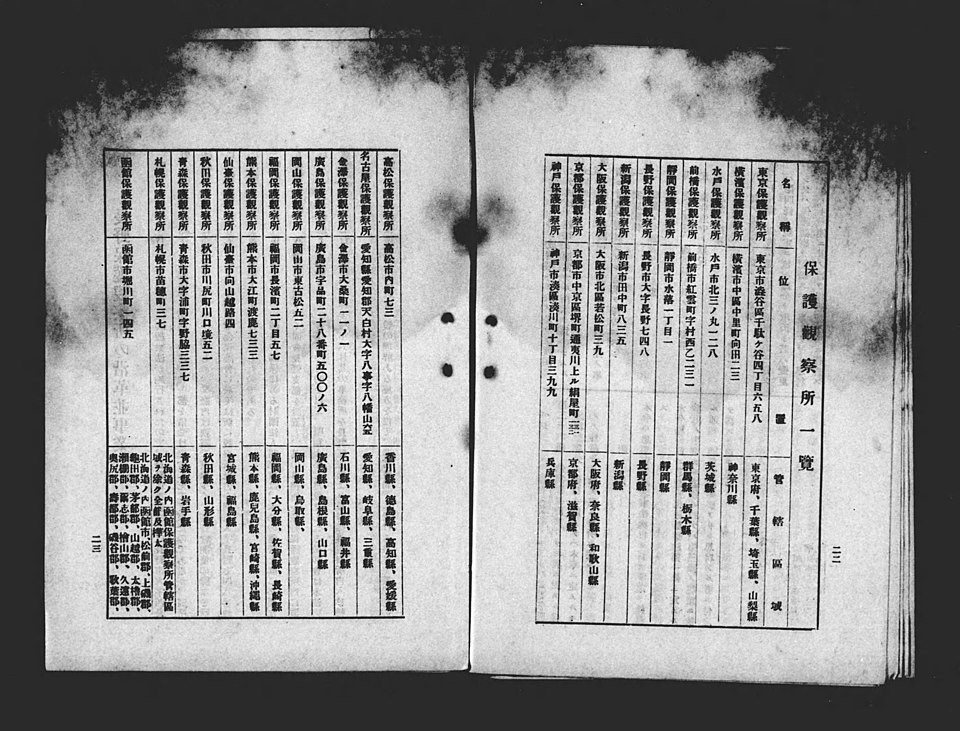 保護觀察所一覽
名稱 位置 管轄區域
東京保護觀察所 東京市澁谷區千駄ヶ谷四丁目六五八 東京府、千葉縣、埼玉縣、山梨縣
橫濱保護觀察所 橫濱市中區中里町向田二三 神奈川縣
水戶保護觀察所 水戶市北三ノ丸一二八 茨城縣
前橋保護觀察所 前橋市紅雲町字村西乙二三一 群馬縣、栃木縣
靜岡保護觀察所 靜岡市水落一丁目一 靜岡縣
長野保護觀察所 長野市大字長野七四八 長野縣
新潟保護觀察所 新潟市田中町八三五 新潟縣
大阪保護觀察所 大阪市北區若松町三九 大阪府、奈良縣、和歌山縣
京都保護觀察所 京都市中京區堺町通夷川上ル絹屋町 京都府、滋賀縣
神戶保護觀察所 神戶市湊區湊川町十丁目三九九 兵庫縣
二二
高松保護觀察所 高松市內町七三 香川縣、德島縣、高知縣、愛媛縣
名古屋保護觀察所 愛知縣愛知郡天白村大字八事字八幡山 愛知縣、岐阜縣、三重縣
金澤保護觀察所 金澤市大桑町一一ノ一 石川縣、富山縣、福井縣
廣島保護觀察所 廣島市宇品町二十八番町五〇〇ノ六 廣島縣、島根縣、山口縣
岡山保護觀察所 岡山市東古松五二 岡山縣、鳥取縣、
福岡保護觀察所 福岡市長濱町二丁目五七 福岡縣、大分縣、佐賀縣、長崎縣
熊本保護觀察所 熊本市大江町渡鹿七三三 熊本縣、鹿兒島縣、宮崎縣、沖繩縣
仙臺保護觀察所 仙臺市向山越路四 宮城縣、福島縣
秋田保護觀察所 秋田市川尻町川口境五二 秋田縣、山形縣
青森保護觀察所 青森市大字浦町字野脇三三七 青森縣、岩手縣
札幌保護觀察所 札幌市苗穗町三七 北海道ノ內函館保護觀察所管轄區
域ヲ除ク全部及樺太
函館保護觀察所 函館市堀川町一四五 北海道ノ內函館市、松前郡、上磯郡、
龜田郡、茅部郡、山越郡、太櫓郡、
瀨棚郡、爾志郡、檜山郡、久遠郡、
奧尻郡、壽都郡、磯谷郡、歌棄郡、
二三